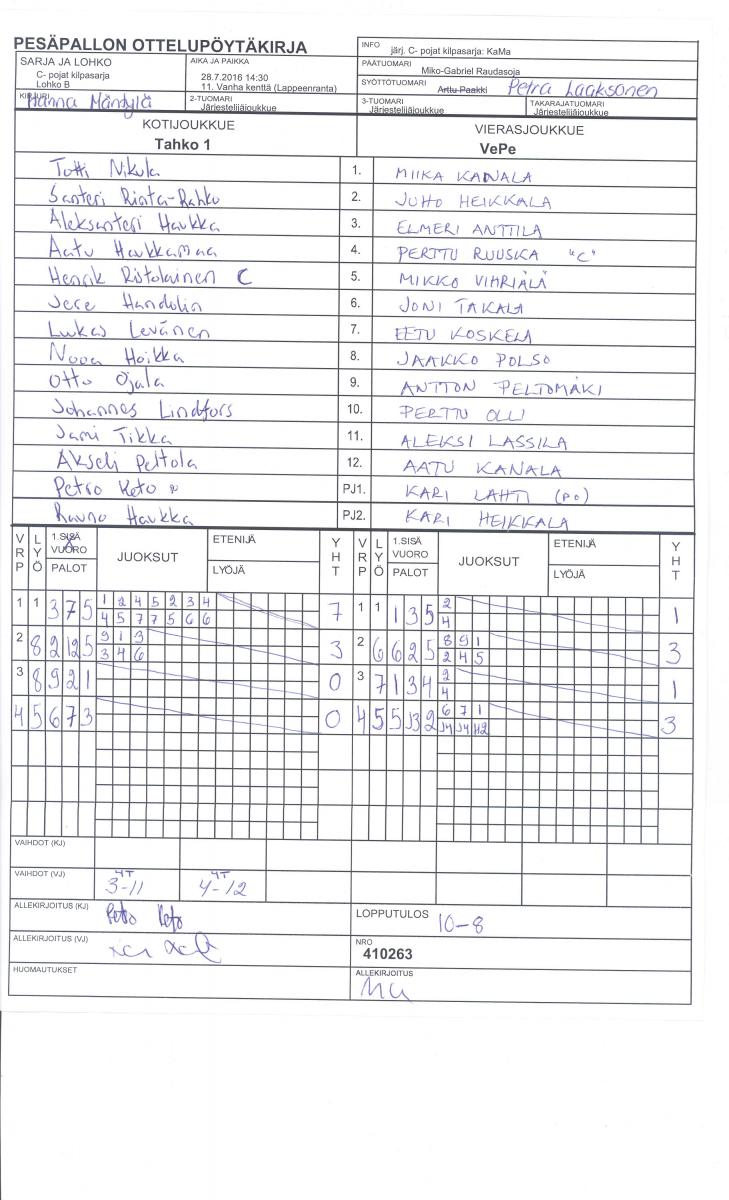 PESÄPALLON OTTELUPÖYTÄKIRJA
INFO järj. C- pojat kilpasarja: KaMa
SARJA JA LOHKO
C- pojat kilpasarja
Lohko B
AIKA JA PAIKKA
28.7.2016 14:30
11. Vanha kenttä (Lappeenranta)
PÄÄTUOMARI
Miko-Gabriel Raudasoja
SYÖTTÖTUOMARI Arttu Paakki Petra Laaksonen
KIRJURI Hanna Mäntylä
2-TUOMARI
Järjestelijäjoukkue
3-TUOMARI
Järjestelijäjoukkue
TAKARAJATUOMARI
Järjestelijäjoukkue
KOTIJOUKKUE VIERASJOUKKUE
Tahko 1 VePe
Totti Nikula 1. MIIKA KANALA
Santeri Rinta-Rahko 2. JUHO HEIKKALA
Aleksanteri Haukka 3. ELMERI ANTTILA
Aatu Haukkamaa 4. PERTTU RUUSKA "C"
Henrik Ristolainen C 5. MIKKO VIHRIÄLÄ
Jere Handolin 6. JONI TAKALA
Lukas Levänen 7. EETU KOSKELA
Nooa Hoikka 8. JAAKKO POLSO
Otto Ojala 9. ANTTON PELTOMÄKI
Johannes Lindfors 10. PERTTU OLLI
Jami Tikka 11. ALEKSI LASSILA
Akseli Peltola 12. AATU KANALA
Petro Keto PJ1. KARI LAHTI (PO)
Rauno Haukka PJ2. KARI HEIKKALA
VRP LYÖ 1.SISÄ VUORO PALOT JUOKSUT ETENIJÄ LYÖJÄ YHT VRP LYÖ 1.SISÄ VUORO PALOT JUOKSUT ETENIJÄ LYÖJÄ YHT
1 1 3 7 5 1 2 4 5 2 3 4 7 1 1 1 3 5 2 1
4 5 7 7 5 6 6 4
2 8 2 12 5 9 1 3 3 2 6 6 2 5 8 9 1 3
3 4 6 2 4 5
3 8 9 2 1 0 3 7 1 3 4 2 1
4
4 5 6 7 3 0 4 5 5 J3 2 6 7 1 3
J4 J4 H2
VAIHDOT (KJ)
VAIHDOT (VJ) 4T 3-11 4T 4-12
ALLEKIRJOITUS (KJ) Petro Keto
LOPPUTULOS 10-8
ALLEKIRJOITUS (VJ)
NRO
410263
HUOMAUTUKSET
ALLEKIRJOITUS